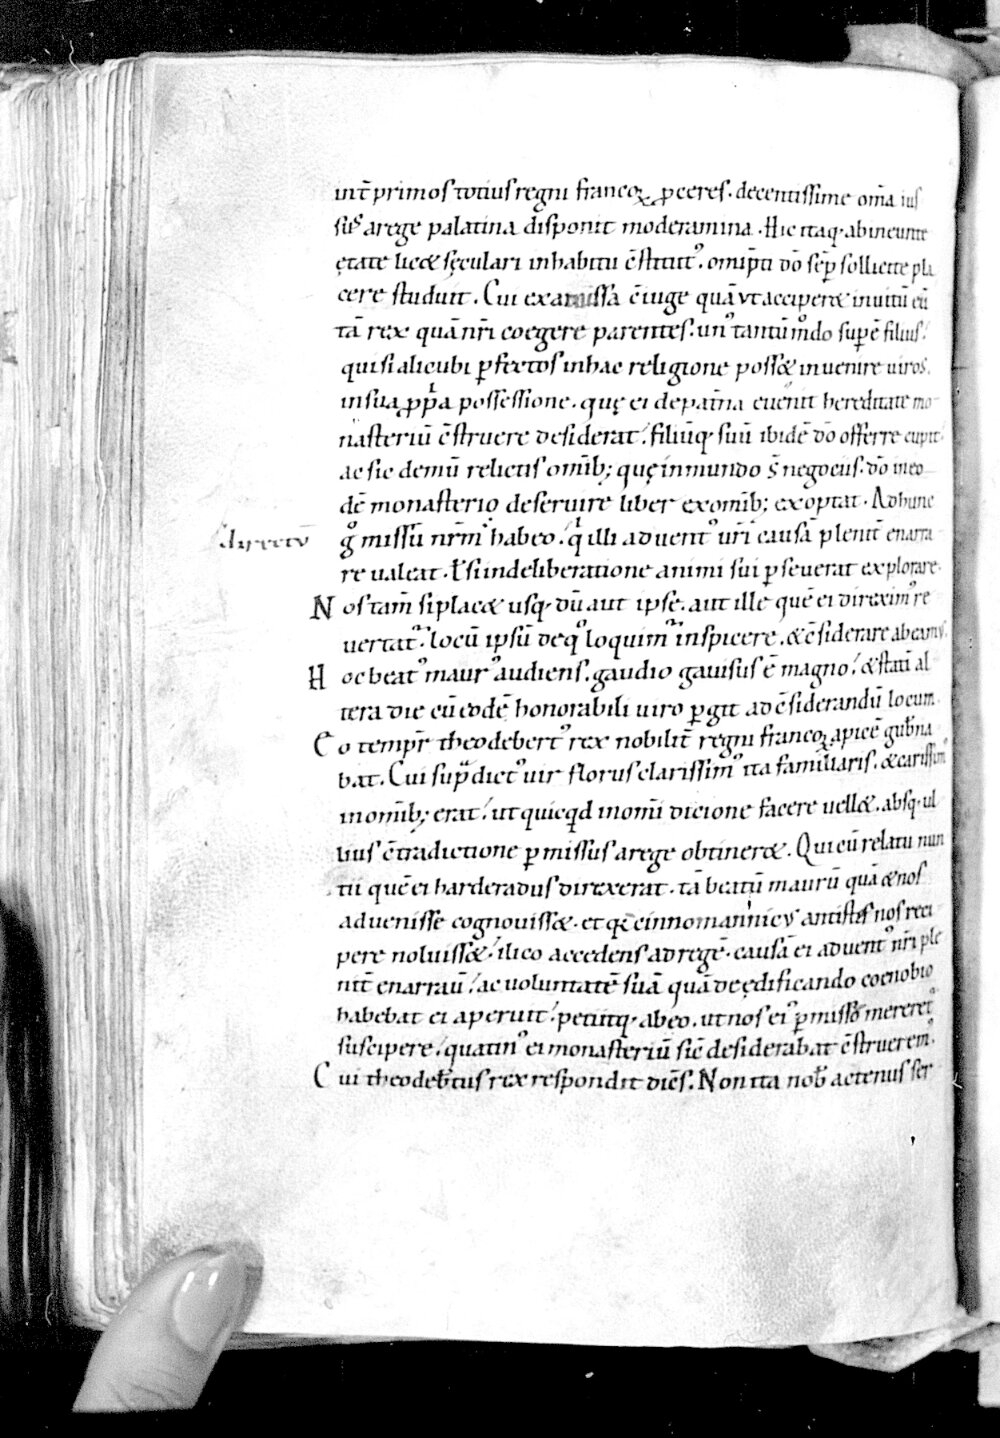 int̄ primos totius regni francoꝝ ꝓceres. decentissime om̄a ius
suꝰ arege palatina disponit moderamina. Hic itaq; abineunte
ętate licet sęculari inhabitu c̄stitutꝰ. omīpti do sēp sollicite pla
cere studuit. Cui exa missā c̄iuge quā vt acciperet inuitū eū
tā rex quā nr̄i coegere parentes. unꝰ tantūm̊do sup̄ē filius.
qui si alicubi ꝑfectos inhac religione posset inuenire uiros.
insua ꝓpͥa possessione. quę ei depat̄na euenit hereditate mo
nasteriū c̄struere desiderat. filiūq; suū ibidē do offerre cupit.
ac sic demū relictis omīb; quę inmundo s̄ negociis. do ineo
dē monasterio deseruire liber exomīb; exoptat. Adhunc
gͦ missū nr̄m habeo. qͥ illi aduentꝰ ur̄i causā plenit̄ enarra
directū
re ualeat. ł si indeliberatione animi sui ꝑseuerat explorare.
Nos tam̄ si placet usq; dū aut ipse. aut ille quē ei direximꝰ re
uertatᷣ. locū ipsū deqͦ loquimᷣ inspicere. & c̄siderare abeamus.
Hoc beatꝰ maurꝰ audiens. gaudio gauisus ē magno. & statī al
tera die cū eodē honorabili uiro ꝑgit adc̄siderandū locum.
Eo tempr̄ theodebertꝰ rex nobilit̄ regni francoꝝ apicē gub̄na
bat. Cui sup̄dictꝰ uir florus clarissimꝰ ita familiaris. & carissimꝰ
inomīb; erat. ut quicq̄d inomī dicione facere uellet. absq; ul
lius c̄tradictione ꝑmissus arege obtineret. Qui cū relatu nun
tii quē ei harderadus direxerat. tā beatū maurū quā & nos
aduenisse cognouisset. et qꝛ cinnomannicꝰ antistes nos reci
pere noluisset. ilico accedens ad regē. causā ei aduentꝰ nr̄i ple
nit̄ enarrauͥ. ac uoluntatē suā quā de ędificando coenobio
habebat ei aperuit. petiitq; abeo. ut nos eiꝰ ꝑmissu mereretᷣ
suscipere. quatinꝰ ei monasteriū sic desiderabat c̄struerem.
Cui theodeb̄tus rex respondit dic̄s. Non ita nob̄ actenus ser